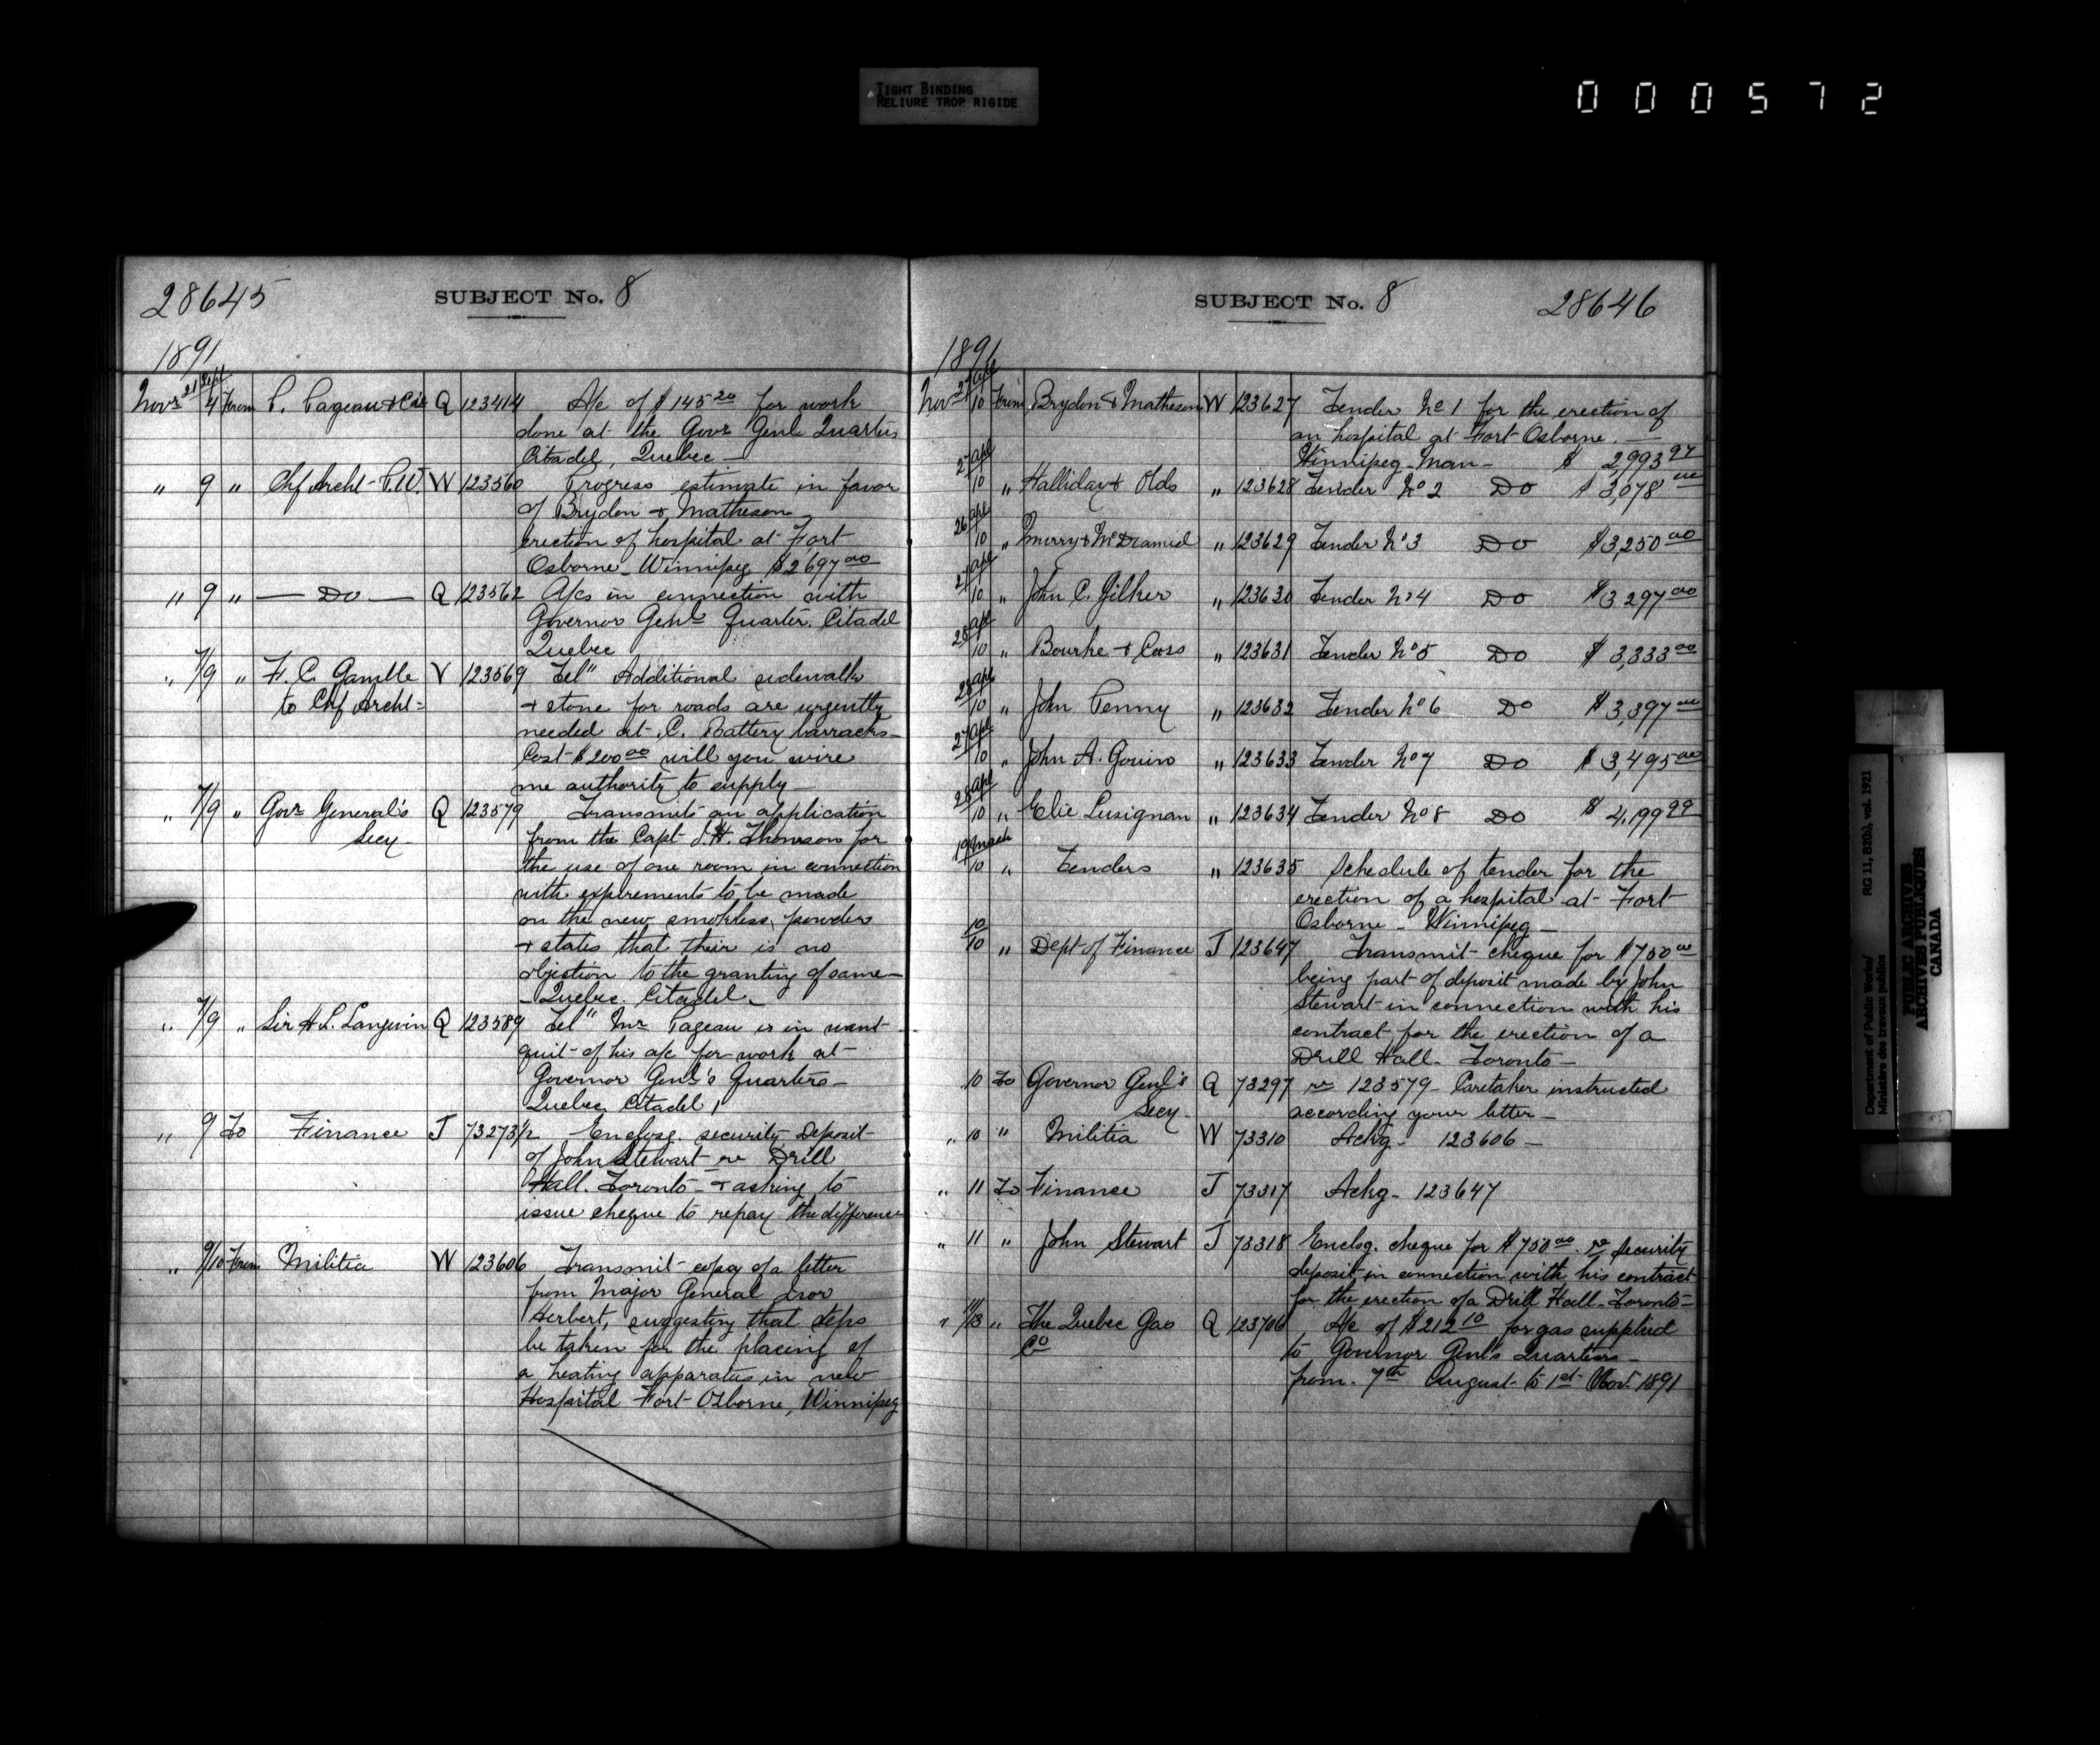 TIGHT BINDING
RELIURE TROP RIGIDE
000572
28645 SUBJECT No. 8
1891
Novr 21 Sept/4 From P. Pageau & Cie Q 123414 A/c of $145 20 for work
done at the Govr Genl Quarters
Citadel, Quebec —
" 9 " Chf Archt P.W. W 123560 Progress estimate in favor
of Brydon & Matheson
erection of hospital at Fort
Osborne - Winnipeg $2697 00
" 9 " — Do — Q 123562 A/cs in connection with
Governor Genl Quarter. Citadel
Quebec
" 7/9 " F. C. Gamble V 123569 Tel" Additional sidewalk
to Chf Archt = & stone for roads are urgently
needed at C. Battery barracks -
Cost $200 00 will you wire
me authority to supply -
" 7/9 " Govr General's Q 123579 Transmits an application
Secy - from the Capt J. H. Thomson for
the use of one room in connection
with experements to be made
on the new smokless powder
& states that their is no
objection to the granting of same -
- Quebec Citadel -
" 7/9 " Sir H. L. Langevin Q 123589 Tel" Mr Pageau is in want
of his a/c for work at
Governor Genl's Quarters -
Quebec Citadel
" 9 To Finance J 73273 1/2 Enclosg. security Deposit
of John Stewart re Drill
Hall. Toronto - & asking to
issue cheque to repay the difference
" 9/10 From Militia W 123606 Transmit copy of a letter
from Major General Ivor
Herbert, suggesting that steps
be taken for the placing of
a heating apparatus in new
Hospital Fort Osborne, Winnipeg
SUBJECT No. 8 28646
1891
Nov 27 apl/10 From Brydon & Matheson W 123627 Tender No 1 for the erection of
an hospital at Fort Osborne. —
Winnipeg - Man - $ 2,993 97
27 apl/10 " Halliday & Olds " 123628 Tender No 2 Do $ 3,078 00
26 apl/10 " " 123629 Tender No 3 Do $3,250 00
27 apl/10 " John C. Gilker " 123630 Tender No 4 Do $3,297 00
28 apl/10 " Bourke & Coss " 123631 Tender No 5 Do $ 3,333 00
28 apl/10 " John Penny " 123632 Tender No 6 Do $3,397 00
27 apl/10 " John A. " 123633 Tender No 7 Do $ 3,495 00
28 apl/10 " Elie Lusignan " 123634 Tender No 8 Do $
19 March/10 " Tenders " 123635 Schedule of tender for the
erection of a hospital at Fort
Osborne - Winnipeg -
10/10 " Dept of Finance J 123647 Transmit cheque for $750 00
being part of deposit made by John
Stewart in connection with his
contract for the erection of a
Drill Hall - Toronto -
10 To Governor Genl's Q 73297 re 123579 - Caretaker instructed
Secy - according your letter -
" 10 " Militia W 73310 Ackg - 123606 -
" 11 To Finance J 73317 Ackg - 123647
" 11 " John Stewart J 73318 Enclosg. cheque for $750 00. re security
deposit in connection with his contract
for the erection of a Drill Hall. Toronto -
" 11/13 " The Quebec Gas Q 123706 A/c of $212 10 for gas supplied
Co to Governor Genl's Quarters -
from 7th August to 1st Nov. 1891
Department of Public Works/ RG 11, B2(b), vol. 1921
Ministère des travaux publics
PUBLIC ARCHIVES
ARCHIVES PUBLIQUES
CANADA